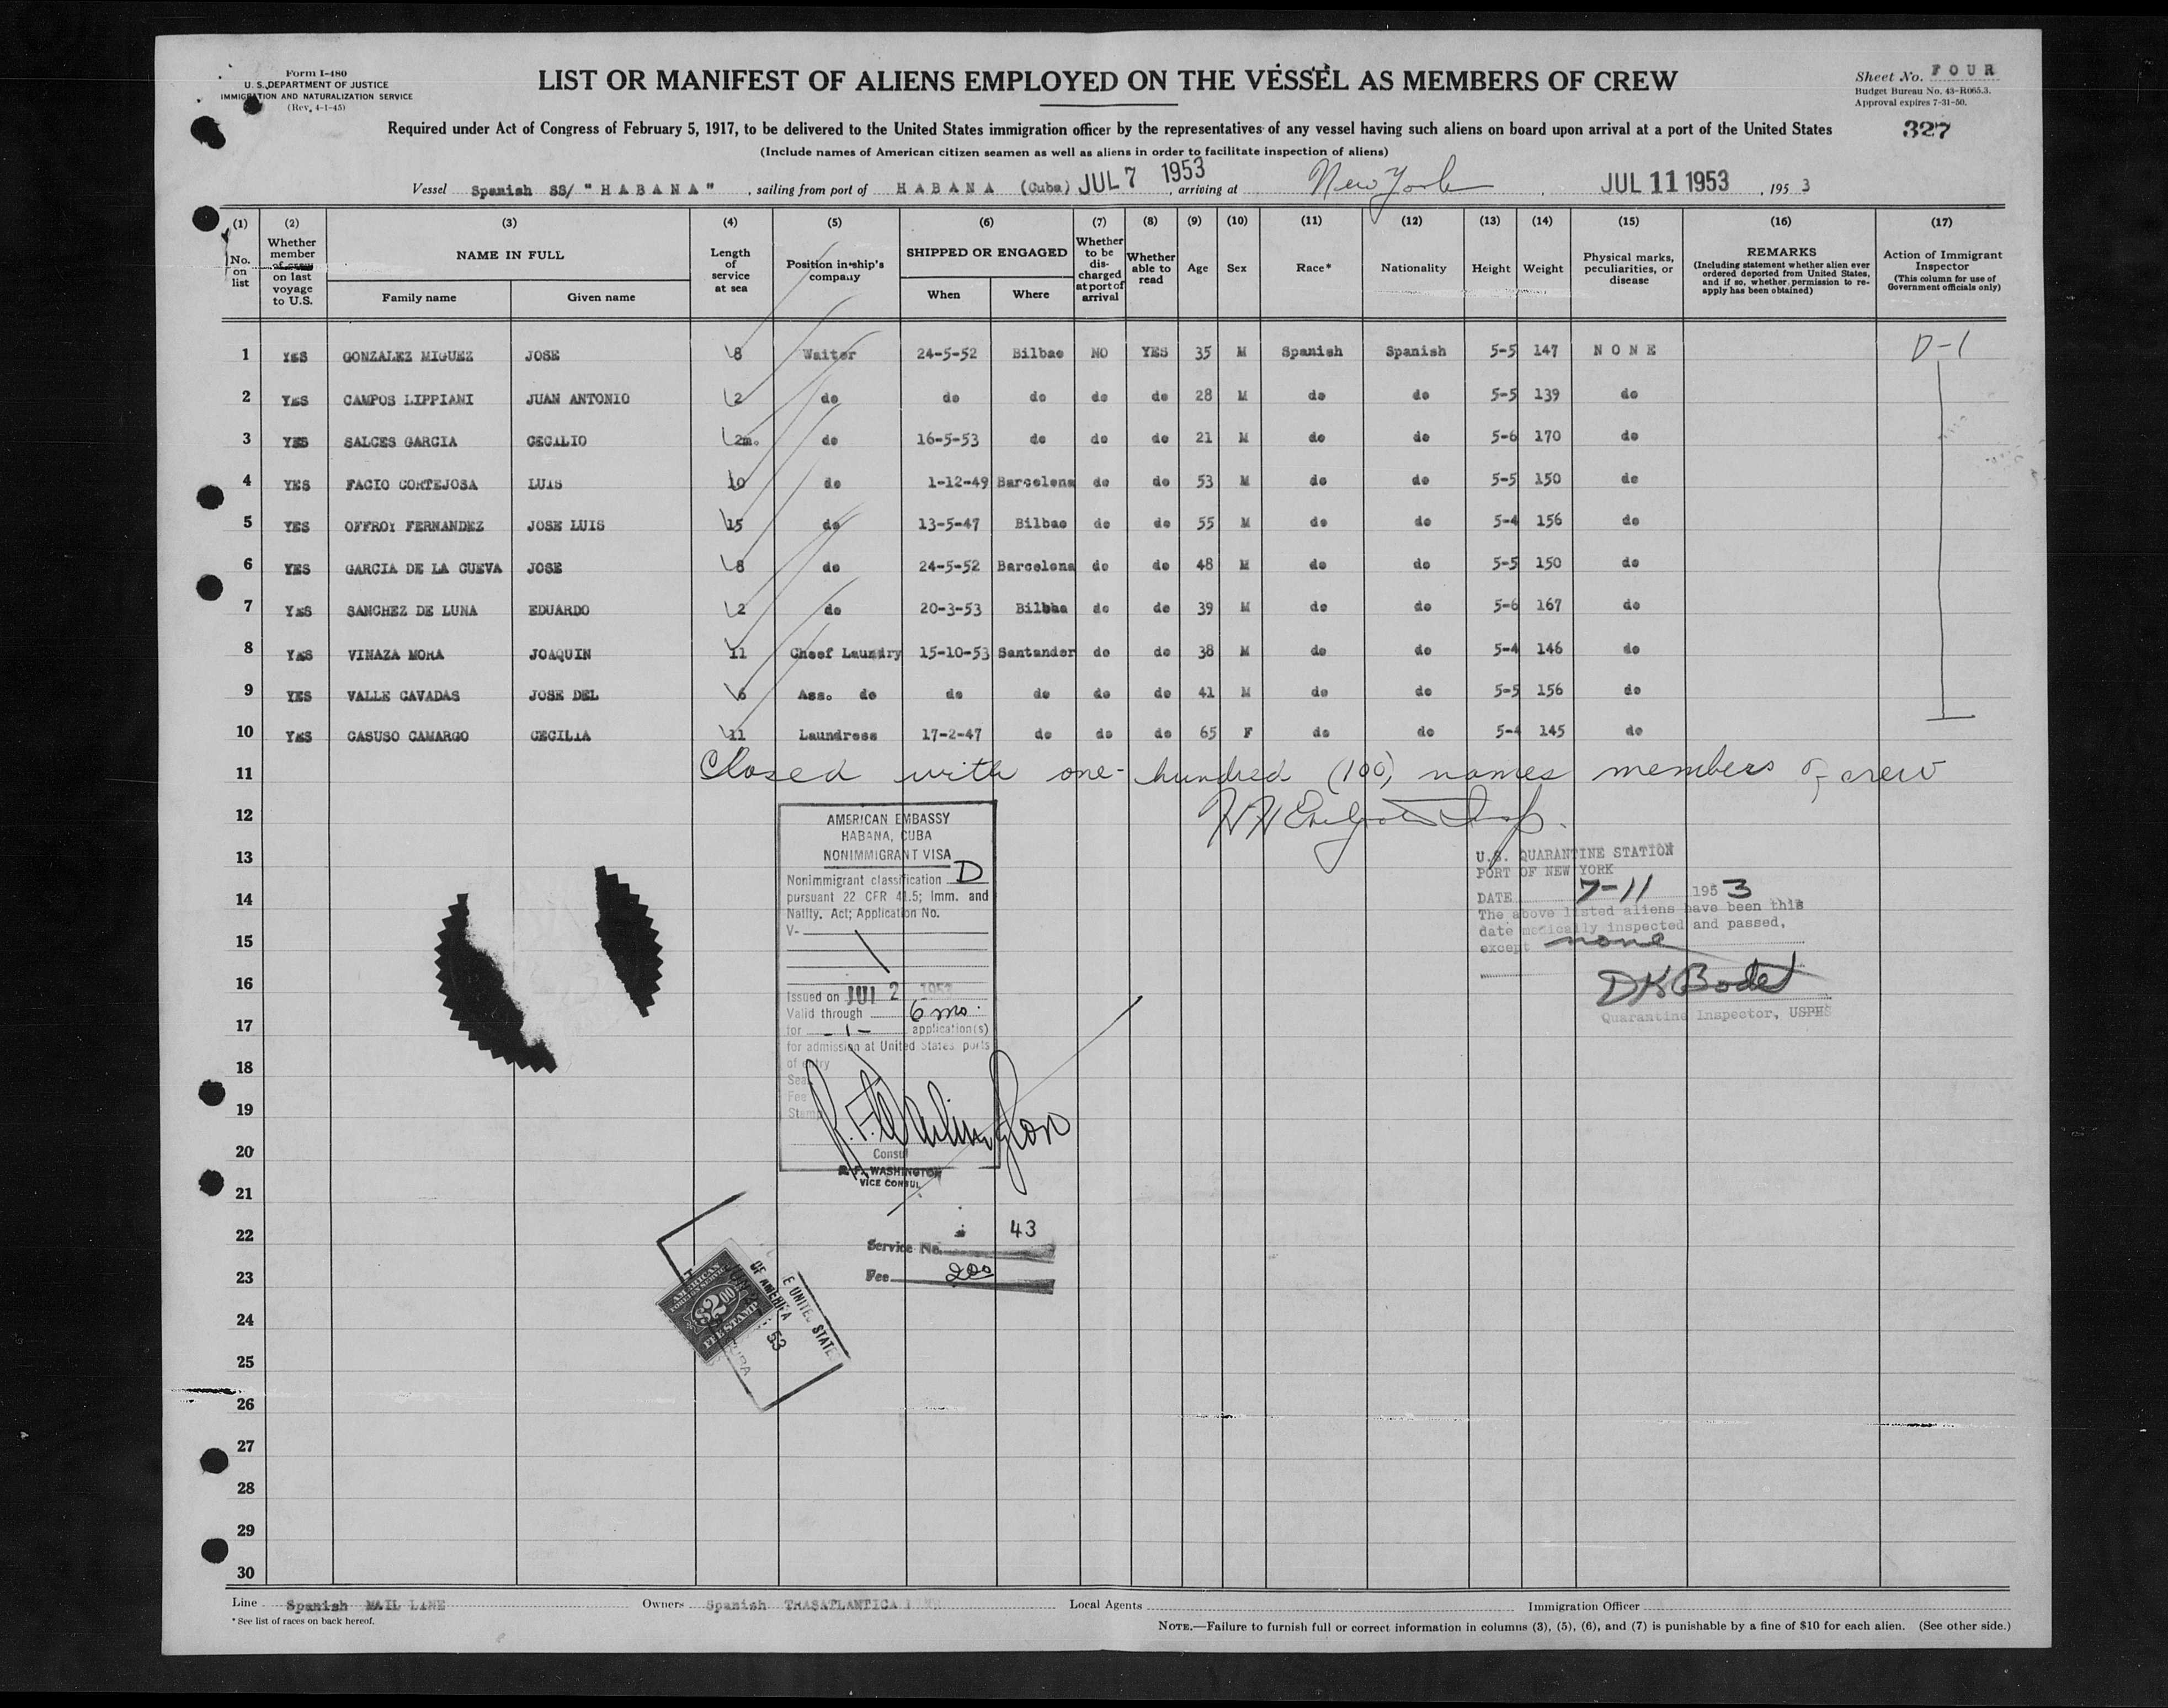 Form I-480
U. S. DEPARTMENT OF JUSTICE
IMMIGRATION AND NATURALIZATION SERVICE
(Rev. 4-1-45)
LIST OR MANIFEST OF ALIENS EMPLOYED ON THE VESSEL AS MEMBERS OF CREW
Sheet No. FOUR
Budget Bureau No. 43-R065.3.
Approval expires 7-31-50.
327
Required under Act of Congress of February 5, 1917, to be delivered to the United States immigration officer by the representatives of any vessel having such aliens on board upon arrival at a port of the United States
(Include names of American citizen seamen as well as aliens in order to facilitate inspection of aliens)
Vessel Spanish SS/ "HABANA", sailing from port of HABANA (Cuba) JUL 7 1953, arriving at New York, JUL 11 1953, 195 3
(1) (2) (3) (4) (5) (6) (7) (8) (9) (10) (11) (12) (13) (14) (15) (16) (17)
No. on list
Whether member of crew on last voyage to U.S.
NAME IN FULL
Family name
Given name
Length of service at sea
Position in ship's company
SHIPPED OR ENGAGED
When
Where
Whether to be discharged at port of arrival
Whether able to read
Age
Sex
Race*
Nationality
Height
Weight
Physical marks, peculiarities, or disease
REMARKS
(Including statement whether alien ever ordered deported from United States, and if so, whether permission to reapply has been obtained)
Action of Immigrant Inspector
(This column for use of Government officials only)
1 YES GONZALEZ MIGUEZ JOSE 8 Waiter 24-5-52 Bilbao NO YES 35 M Spanish Spanish 5-5 147 NONE D-1
2 YES CAMPOS LIPPIANI JUAN ANTONIO 2 do do do do do 28 M do do 5-5 139 do
3 YES SALCES GARCIA CECILIO 2m. do 16-5-53 do do do 21 M do do 5-6 170 do
4 YES FACIO CORTEJOSA LUIS 10 do 1-12-49 Barcelona do do 53 M do do 5-5 150 do
5 YES OFFROY FERNANDEZ JOSE LUIS 15 do 13-5-47 Bilbao do do 55 M do do 5-4 156 do
6 YES GARCIA DE LA CUEVA JOSE 8 do 24-5-52 Barcelona do do 48 M do do 5-5 150 do
7 YES SANCHEZ DE LUNA EDUARDO 2 do 20-3-53 Bilbao do do 39 M do do 5-6 167 do
8 YES VINAZA MORA JOAQUIN 11 Cheef Laundry 15-10-53 Santander do do 38 M do do 5-4 146 do
9 YES VALLE CAVADAS JOSE DEL 6 Ass. do do do do do 41 M do do 5-5 156 do
10 YES CASUSO CAMARGO CECILIA 11 Laundress 17-2-47 do do do 65 F do do 5-4 145 do
11 Closed with one-hundred (100) names members of crew
12
13
14
15
16
17
18
19
20
21
22
23
24
25
26
27
28
29
30
AMERICAN EMBASSY
HABANA, CUBA
NONIMMIGRANT VISA
Nonimmigrant classification D
pursuant 22 CFR 41.5; Imm. and
Natlty. Act; Application No.
V-
Issued on JUL 2 1953
Valid through 6 mo.
for -1- application(s)
for admission at United States ports
of entry
Seal
Fee
Stamp
R. F. Washington
Consul
R. F. WASHINGTON
VICE CONSUL
Service No. 43
Fee 2.00
AMERICAN
FOREIGN SERVICE
$2.00
FEE STAMP
E UNITED STATE
OF AMERICA
53
U.S. QUARANTINE STATION
PORT OF NEW YORK
DATE 7-11 1953
The above listed aliens have been this
date medically inspected and passed,
except none
DK Bodet
Quarantine Inspector, USPHS
Line Spanish MAIL LINE Owners Spanish TRASATLANTICA LINE Local Agents Immigration Officer
* See list of races on back hereof.
NOTE.—Failure to furnish full or correct information in columns (3), (5), (6), and (7) is punishable by a fine of $10 for each alien. (See other side.)